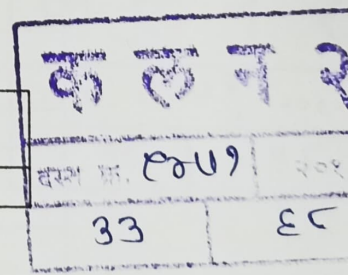 क ल न २
दस्त क्र. ९७५१ २०१
३३ ६८